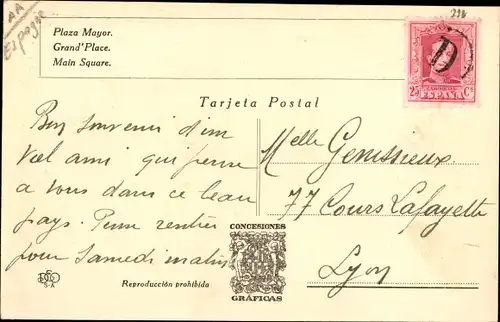 AA
Espagne
Plaza Mayor.
Grand'Place.
Main Square.
25 Cs
ESPAÑA
D
Tarjeta Postal
Bon souvenir d'un
vieil ami qui pense
a vous dans ce beau
pays.
pour Samedi matin
Melle Genissieux
77 Cours Lafayette
Lyon
CONCESIONES
GRÁFICAS
S-A
Reproducción prohibida